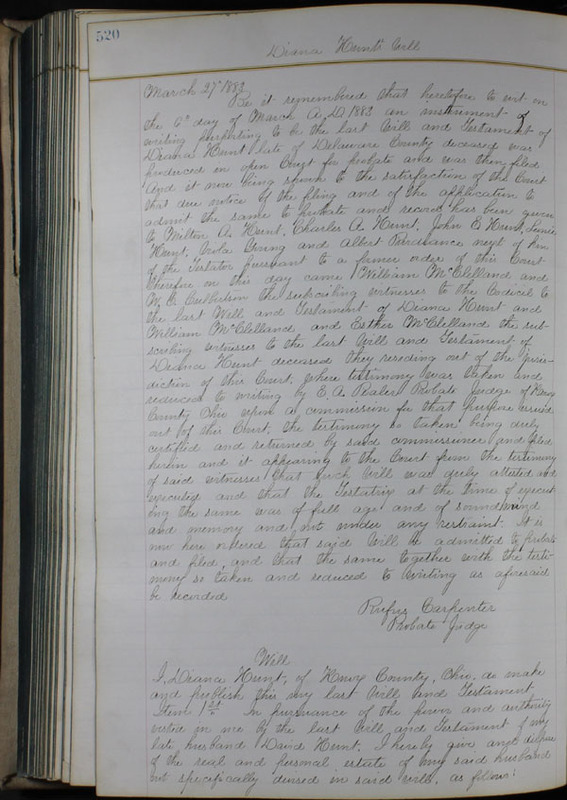 520
Diana Hunt's Will
March 27th 1883
Be it remembered that heretofore to wit on
the 6th day of March A.D 1883 an instrument of
writing purporting to be the last Will and Testament of
Diana Hunt late of Delaware County deceased was
produced in open Court for probate and was then filed
And it now being shown to the satisfaction of the Court
that due notice of the filing and of the application to
admit the same to probate and record has been given
to Milton A. Hunt, Charles A. Hunt, John E Hunt,
Hunt, Viola and Albert next of kin
of the Testator pursuant to a former order of this Court
therefore on this day came William McClelland and
W. G Culbertson the subscribing witnesses to the Codicil to
the last Will and Testament of Diana Hunt and
William McClelland and Esther McClelland the sub-
scribing witnesses to the last Will and Testament of
Diana Hunt deceased they reseding out of the juris-
diction of this Court, whose testimony was taken and
reduced to writing by E. A. Probate Judge of Henry
County Ohio upon a commission for that purpose issued
out of this Court, the testimony so taken being duly
certified and returned by said commissioner and filed
herein and it appearing to the Court from the testimony
of said witnesses that such Will was duly attested and
executed and that the Testatrix at the time of execut
ing the same was of full age and of sound mind
and memory and not under any restraint. It is
now here ordered that said Will is admitted to probate
and filed, and that the same together with the testi-
mony so taken and reduced to writing as aforesaid
be recorded
Rufus Carpenter
Probate Judge
Will
I, Diana Hunt, of Henry County, Ohio, do make
and publish this my last Will and Testament.
Item 1st In pursuance of the power and authority
vested in me by the last Will and Testament of my
late husband David Hunt, I hereby give and dispose
of the real and personal estate of my said husband
not specifically devised in said will, as follows: